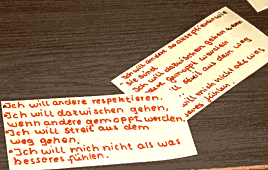 Ich will andere respektieren.
Ich will dazwischen gehen,
wenn andere gemoppt werden.
Ich will Streit aus dem
weg gehen.
Ich will mich nicht als was
besseres fühlen.
Ich will andere so akzeptieren wie
sie sind
Ich will dazwischen gehen wenn
gemoppt werden
Streit aus dem weg
mich nicht als was
fühlen